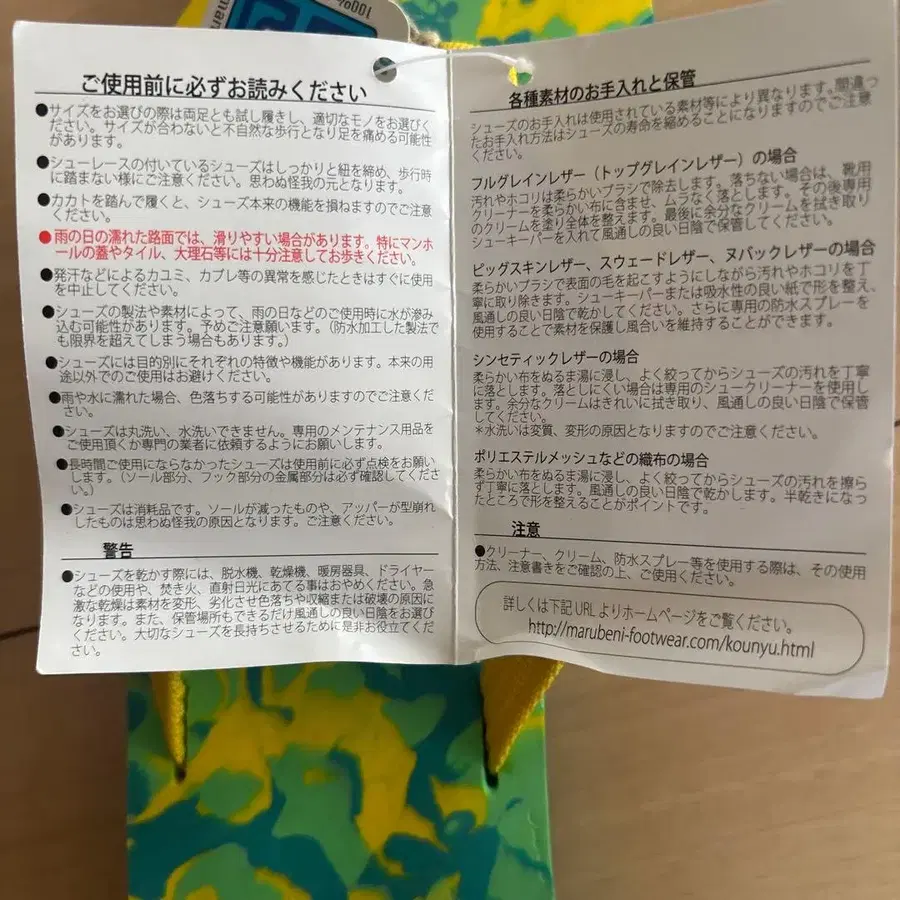 100%
ご使用前に必ずお読みください
●サイズをお選びの際は両足とも試し履きし、適切なモノをお選びく
ださい。サイズが合わないと不自然な歩行となり足を痛める可能性
があります。
●シューレースの付いているシューズはしっかりと紐を締め、歩行時
に踏まない様にご注意ください。思わぬ怪我の元となります。
●カカトを踏んで履くと、シューズ本来の機能を損ねますのでご注意
ください。
●雨の日の濡れた路面では、滑りやすい場合があります。特にマンホ
ールの蓋やタイル、大理石等には十分注意してお歩きください。
●発汗などによるカユミ、カブレ等の異常を感じたときはすぐに使用
を中止してください。
●シューズの製法や素材によって、雨の日などのご使用時に水が滲み
込む可能性があります。予めご注意願います。（防水加工した製法で
も限界を超えてしまう場合もあります。）
●シューズには目的別にそれぞれの特徴や機能があります。本来の用
途以外でのご使用はお避けください。
●雨や水に濡れた場合、色落ちする可能性がありますのでご注意くだ
さい。
●シューズは丸洗い、水洗いできません。専用のメンテナンス用品を
ご使用頂くか専門の業者に依頼するようにお願いします。
●長時間ご使用にならなかったシューズは使用前に必ず点検をお願い
します。（ソール部分、フック部分の金属部分は必ず確認してくださ
い。）
●シューズは消耗品です。ソールが減ったものや、アッパーが型崩れ
したものは思わぬ怪我の原因となります。ご注意ください。
警告
●シューズを乾かす際には、脱水機、乾燥機、暖房器具、ドライヤー
などの使用や、焚き火、直射日光にあてる事はおやめください。急
激な乾燥は素材を変形、劣化させ色落ちや収縮または破壊の原因に
なります。また、保管場所もできるだけ風通しの良い日陰をお選び
ください。大切なシューズを長持ちさせるために是非お役立てくだ
さい。
各種素材のお手入れと保管
シューズのお手入れは使用されている素材等により異なります。間違っ
たお手入れ方法はシューズの寿命を縮めることになりますのでご注意
ください。
フルグレインレザー（トップグレインレザー）の場合
汚れやホコリは柔らかいブラシで除去します。落ちない場合は、靴用
クリーナーを柔らかい布に含ませ、ムラなく落とします。その後専用
のクリームを塗り全体を整えます。最後に余分なクリームを拭き取り
シューキーパーを入れて風通しの良い日陰で保管してください。
ピッグスキンレザー、スウェードレザー、ヌバックレザーの場合
柔らかいブラシで表面の毛を起こすようにしながら汚れやホコリを丁
寧に取り除きます。シューキーパーまたは吸水性の良い紙で形を整え、
風通しの良い日陰で乾かしてください。さらに専用の防水スプレーを
使用することで素材を保護し風合いを維持することができます。
シンセティックレザーの場合
柔らかい布をぬるま湯に浸し、よく絞ってからシューズの汚れを丁寧
に落とします。落としにくい場合は専用のシュークリーナーを使用し
ます。余分なクリームはきれいに拭き取り、風通しの良い日陰で保管
してください。
＊水洗いは変質、変形の原因となりますのでご注意ください。
ポリエステルメッシュなどの織布の場合
柔らかい布をぬるま湯に浸し、よく絞ってからシューズの汚れを擦ら
ず丁寧に落とします。風通しの良い日陰で乾かします。半乾きになっ
たところで形を整えることがポイントです。
注意
●クリーナー、クリーム、防水スプレー等を使用する際は、その使用
方法、注意書きをご確認の上、ご使用ください。
詳しくは下記 URL よりホームページをご覧ください。
http://marubeni-footwear.com/kounyu.html